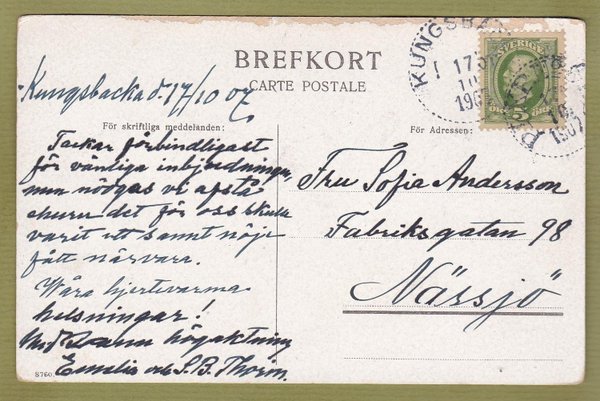 BREFKORT
CARTE POSTALE
KUNGSBACKA
17 10
1907
SVERIGE
5
1907
Kungsbacka d. 17/10 07
För skriftliga meddelanden:
För Adressen:
Tackar förbindligast
för vänliga inbjudningen,
men nödgas vi afstå
churu det för oss skulle
varit ett sannt nöje
fått närvara.
Wåra hjertevarma
helsningar!
högaktning
Emilia och S. B. Thorin.
Fru Sofia Andersson
Fabriksgatan 98
Nässjö
8760.